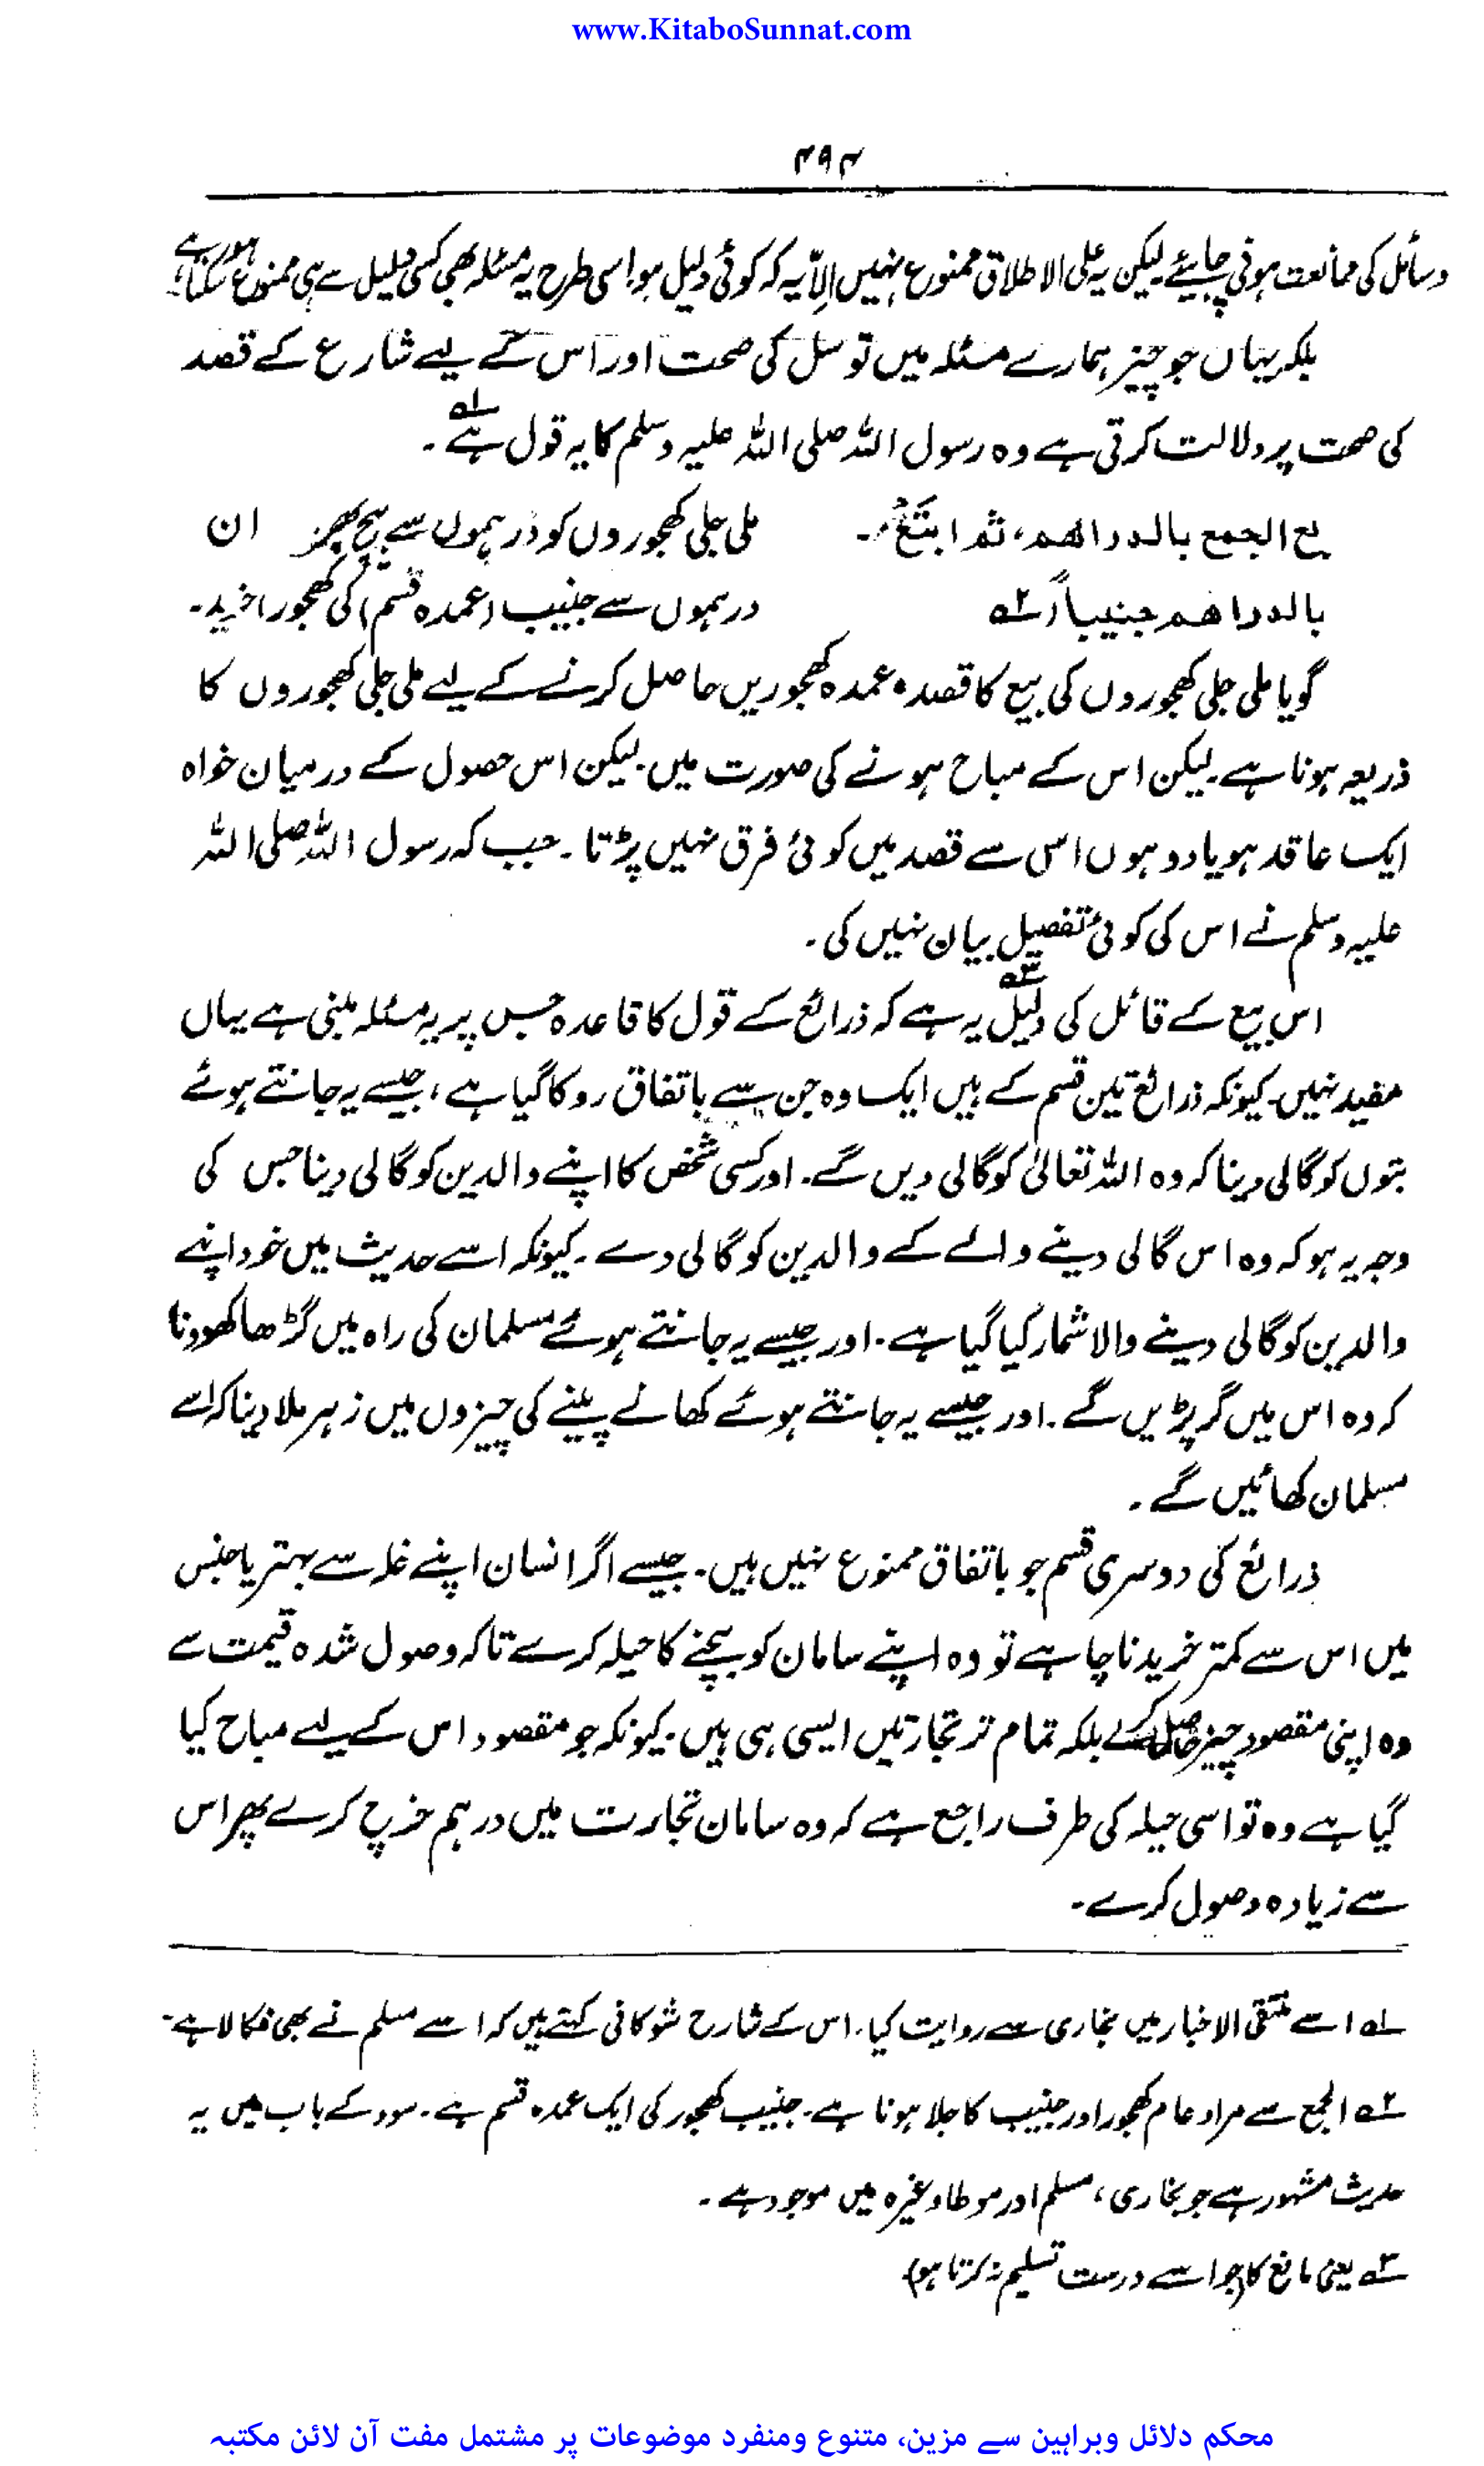 www.KitaboSunnat.com
۴۹۴
وسائل کی ممانعت ہونی چاہیئے۔ لیکن یہ علی الاطلاق ممنوع نہیں اِلّا یہ کہ کوئی دلیل ہو۔ اسی طرح یہ مسئلہ بھی کسی دلیل سے ہی ممنوع ہو سکتا ہے
بلکہ یہاں جو چیز ہمارے مسئلہ میں توسل کی صحت اور اس کے لیے شارع کے قصد
کی صحت پر دلالت کرتی ہے وہ رسول اللہ صلی اللہ علیہ وسلم کا یہ قول ہے۱؎۔
بع الجمع بالدراھم، ثم ابتَعْ۔ ملی جلی کھجوروں کو درہموں سے بیچ پھر ان
بالدراھم جنیباً۲؎ درہموں سے جنیب (عمدہ قسم) کی کھجور اخرید۔
گویا ملی جلی کھجوروں کی بیع کا قصد، عمدہ کھجوریں حاصل کرنے کے لیے ملی جلی کھجوروں کا
ذریعہ ہونا ہے۔ لیکن اس کے مباح ہونے کی صورت میں۔ لیکن اس حصول کے درمیان خواہ
ایک عاقد ہو یا دو ہوں اس سے قصد میں کوئی فرق نہیں پڑتا۔ جب کہ رسول اللہ صلی اللہ
علیہ وسلم نے اس کی کوئی تفصیل بیان نہیں کی۔
اس بیع کے قائل کی دلیل۳؎ یہ ہے کہ ذرائع کے قول کا قاعدہ جس پر یہ مسئلہ مبنی ہے یہاں
مفید نہیں۔ کیونکہ ذرائع تین قسم کے ہیں ایک وہ جن سے باتفاق روکا گیا ہے، جیسے یہ جانتے ہوئے
بتوں کو گالی دینا کہ وہ اللہ تعالیٰ کو گالی دیں گے۔ اور کسی شخص کا اپنے والدین کو گالی دینا جس کی
وجہ یہ ہو کہ وہ اس گالی دینے والے کے والدین کو گالی دے۔ کیونکہ اسے حدیث میں خود اپنے
والدین کو گالی دینے والا شمار کیا گیا ہے۔ اور جیسے یہ جانتے ہوئے مسلمان کی راہ میں گڑھا کھودنا
کہ وہ اس میں گر پڑیں گے۔ اور جیسے یہ جانتے ہوئے کھانے پینے کی چیزوں میں زہر ملا دینا کہ اسے
مسلمان کھائیں گے۔
ذرائع کی دوسری قسم جو باتفاق ممنوع نہیں ہیں۔ جیسے اگر انسان اپنے غلہ سے بہتر یا جنس
میں اس سے کمتر خریدنا چاہے تو وہ اپنے سامان کو بیچنے کا حیلہ کرے تاکہ وصول شدہ قیمت سے
وہ اپنی مقصود چیز حاصل کرلے بلکہ تمام تر تجارتیں ایسی ہی ہیں۔ کیونکہ جو مقصود اس کے لیے مباح کیا
گیا ہے وہ تو اسی حیلہ کی طرف راجع ہے کہ وہ سامان تجارت میں درہم خرچ کرے پھر اس
سے زیادہ وصول کرے۔
۱؎ اسے منتقی الاخبار میں بخاری سے روایت کیا۔ اس کے شارح شوکانی کہتے ہیں کہ اسے مسلم نے بھی نکالا ہے۔
۲؎ الجمع سے مراد عام کھجور اور جنیب کا جلا ہونا ہے۔ جنیب کھجور کی ایک عمدہ قسم ہے۔ سود کے باب میں یہ
حدیث مشہور ہے جو بخاری، مسلم اور موطا وغیرہ میں موجود ہے۔
۳؎ یعنی مانع کا (جو اسے درست تسلیم نہ کرتا ہو)
محکم دلائل وبراہین سے مزین، متنوع ومنفرد موضوعات پر مشتمل مفت آن لائن مکتبہ